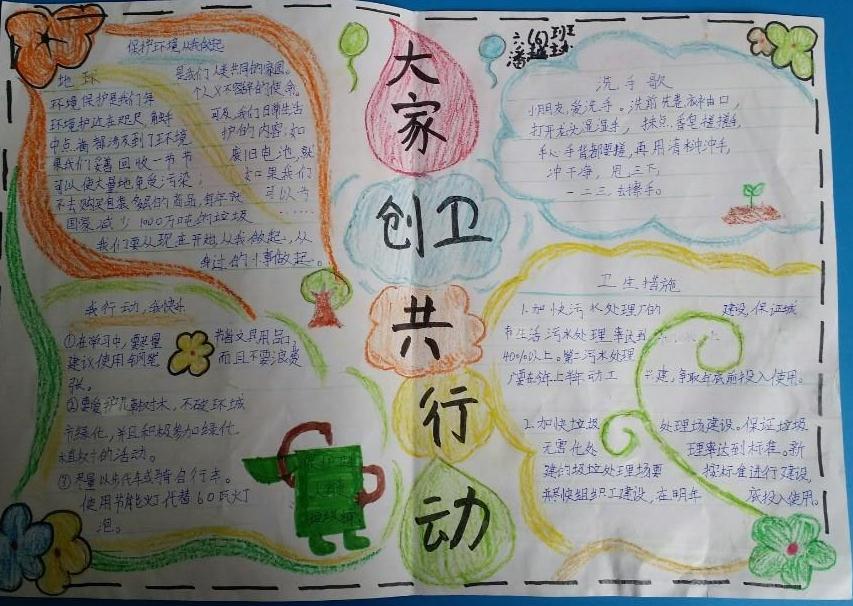 大家
创卫
共
行
动
六(6)班
保护环境,从我做起
地球
是我们人类共同的家园。
环境保护是我们每
个人义不容辞的使命。
可及,我们日常生活
护的内容,如
废旧电池,就
如果我们
果我们妥善回收一节节
可以使大量地免受污染;
可以为
国家减少1000万吨的垃圾 ……
我们要从现在开始,从我做起,从
身边的小事做起。
洗手歌
小朋友,爱洗手。洗前先卷衣袖口,
打开龙头湿湿手,抹点香皂搓搓手,
手心手背都要搓,再用清水冲冲手,
冲干净,甩三下,
一二三,去擦手。
我行动,我快乐
①在学习中,要尽量 节省文具用品,
建议使用钢笔 而且不要浪费
张。
②要爱护花草树木,不破坏城
市绿化,并且积极参加绿化
植树的活动。
③尽量以步代车或骑自行车。
使用节能灯代替60瓦灯
泡。
卫生措施
1.加快污水处理厂的 建设,保证城
市生活污水处理率达到
40%以上。第二污水处理
厂要在年上半年动工 兴建,争取年底前投入使用。
2.加快垃圾 处理场建设。保证垃圾
无害化处 理率达到标准。新
建的垃圾处理场要 按标准进行建设,
并尽快组织工建设,在明年 底投入使用。